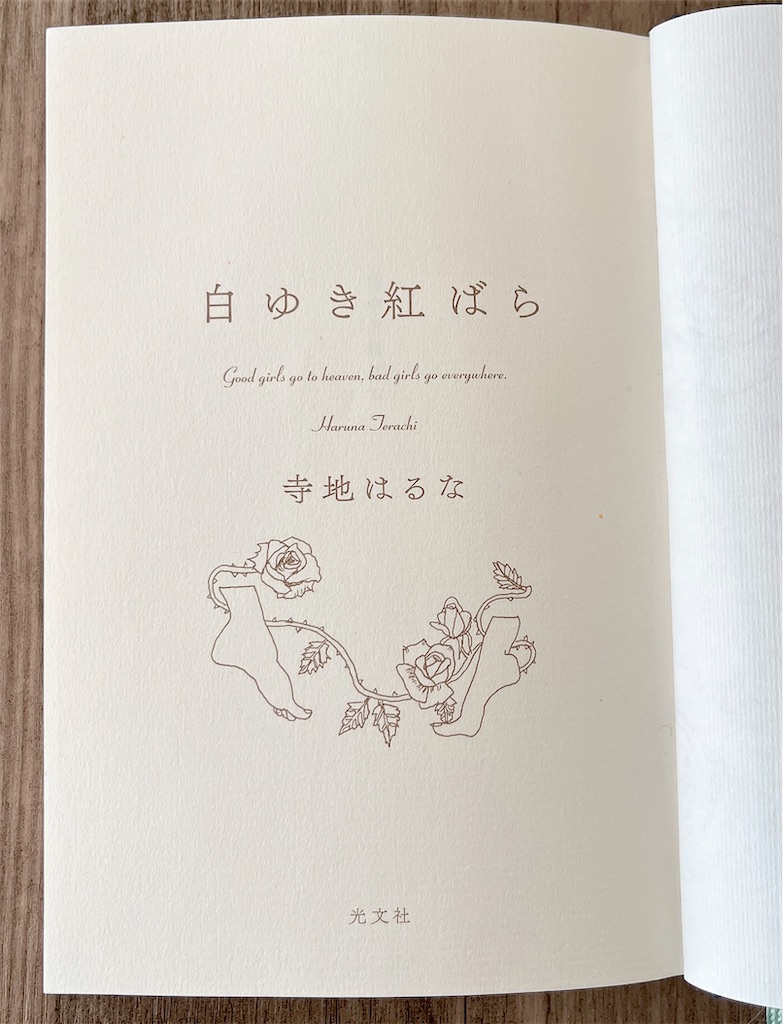 白ゆき紅ばら
Good girls go to heaven, bad girls go everywhere.
Haruna Terachi
寺地はるな
光文社